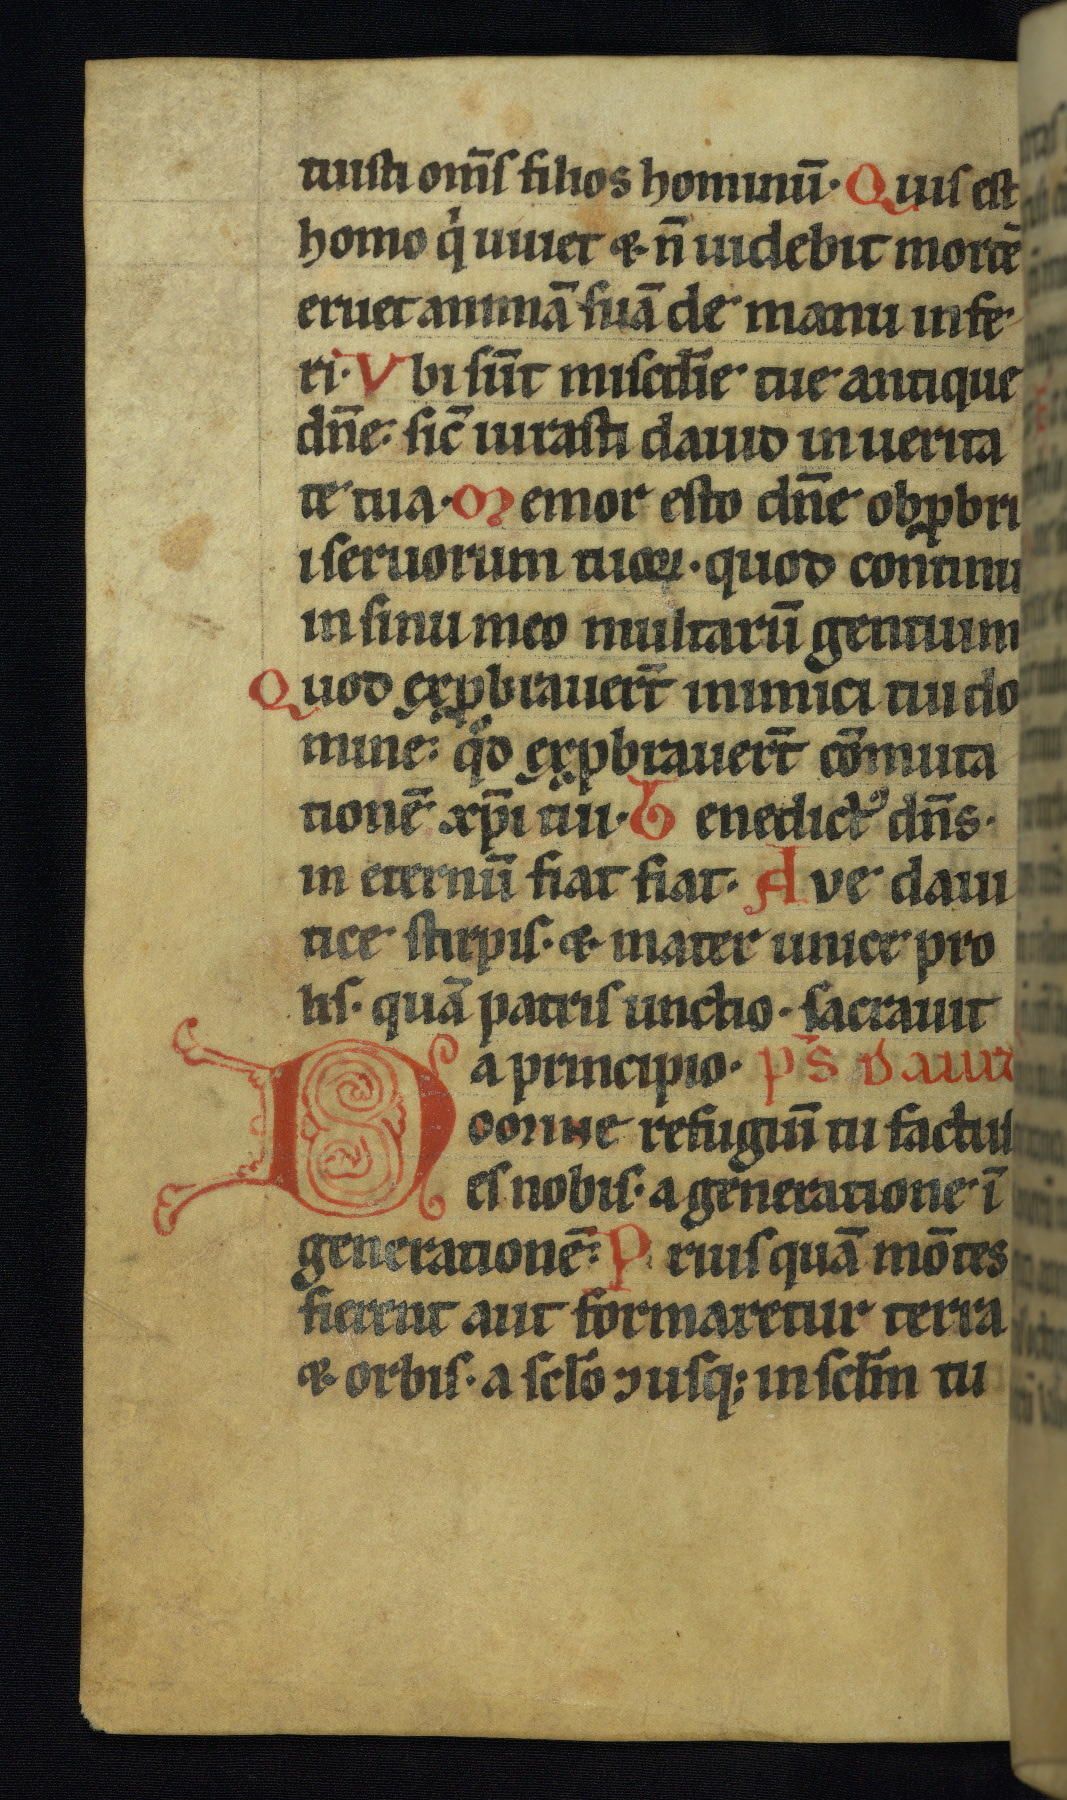 tuisti om̄s filios hominū· Quis est
homo qͥ uiuet & n̄ uidebit mortē
eruet animā suā de manu infe
ri· Vbi sūt misc̄die tue antique
dn̄e: sic̄ iurasti dauid in uerita
te tua· Memor esto dn̄e obꝓbri
i seruorum tuoꝝ· quod continui
in sinu meo multarū gentium
Quod exꝓbrauer̄t inimici tui do
mine: qͦd exꝓbrauer̄t cōmuta
tionē xp̄i tui· Benedictꝰ dn̄s·
in eternū fiat fiat· Ave daui
tice stirpis· & mater unice pro
lis· quā patris unctio· sacrauit
a principio· ps̄ dauit
Domine refugiū tu factus
es nobis· a generatione ī
generationē: Priusquā mōtes
fierent aut formaretur terra
& orbis· a sclo̅ ⁊ usq; in sclm̅ tu